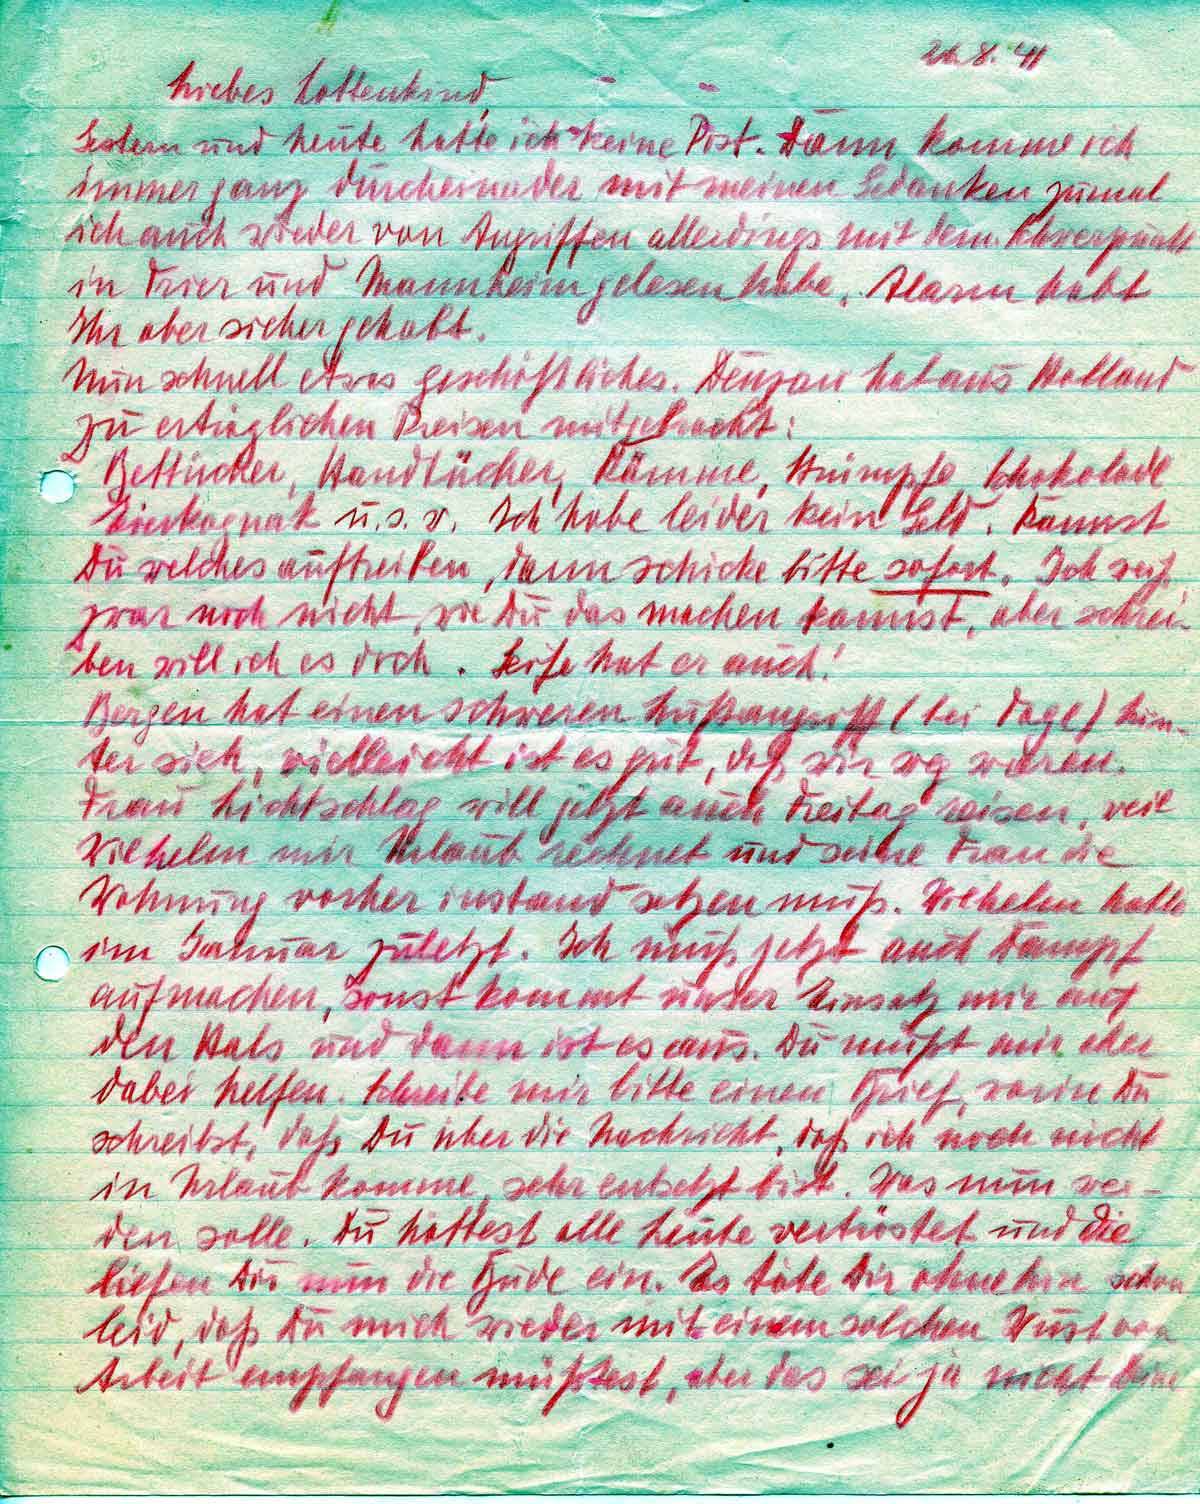 26.8.41
Liebes Lottenkind,
Gestern und heute hatte ich keine Post. Dann komme ich
immer ganz durcheinader mit meinen Gedanken zumal
ich auch wieder von Angriffen allerdings mit dem Schwerpunkt
in Trier und Mannheim gelesen habe. Alarm habt
Ihr aber sicher gehabt.
Nun schnell etwas geschäftliches. hat aus Holland
zu erträglichen Preisen mitgebracht:
Bettücher, Handtücher, Kämme, Strümpfe Schokolade
Eierkognak u.s.w. Ich habe leider kein Geld. Kannst
Du welches auftreiben, dann schicke bitte sofort. Ich weiß
zwar noch nicht, wie Du das machen kannst, aber schrei-
ben will ich es doch. Seife hat er auch!
Bergen hat einen schweren Luftangriff (bei Tage) hin-
ter sich, vielleicht ist es gut, daß wir weg waren.
Frau Lichtschlag will jetzt auch Freitag reisen, weil
Wilhelm mit Urlaub rechnet und seine Frau die
Wohnung vorher instand setzen muß. Wilhelm hatte
im Januar zuletzt. Ich muß jetzt auch Dampf
aufmachen, sonst kommt unser Einsatz mir auf
den Hals und dann ist es aus. Du mußt mir aber
dabei helfen. Schreibe mir bitte einen Brief, worin Du
schreibst, daß Du über die Nachricht, daß ich noch nicht
in Urlaub komme, sehr entsetzt bist. Was nun wer-
den solle. Du hättest alle heute vertröstet und die
liefen Dir nun die Bude ein. Es täte Dir ohnehin schon
leid, daß Du mich wieder mit einem solchen Wust von
Arbeit empfangen müßtest, aber das sei ja nicht deine